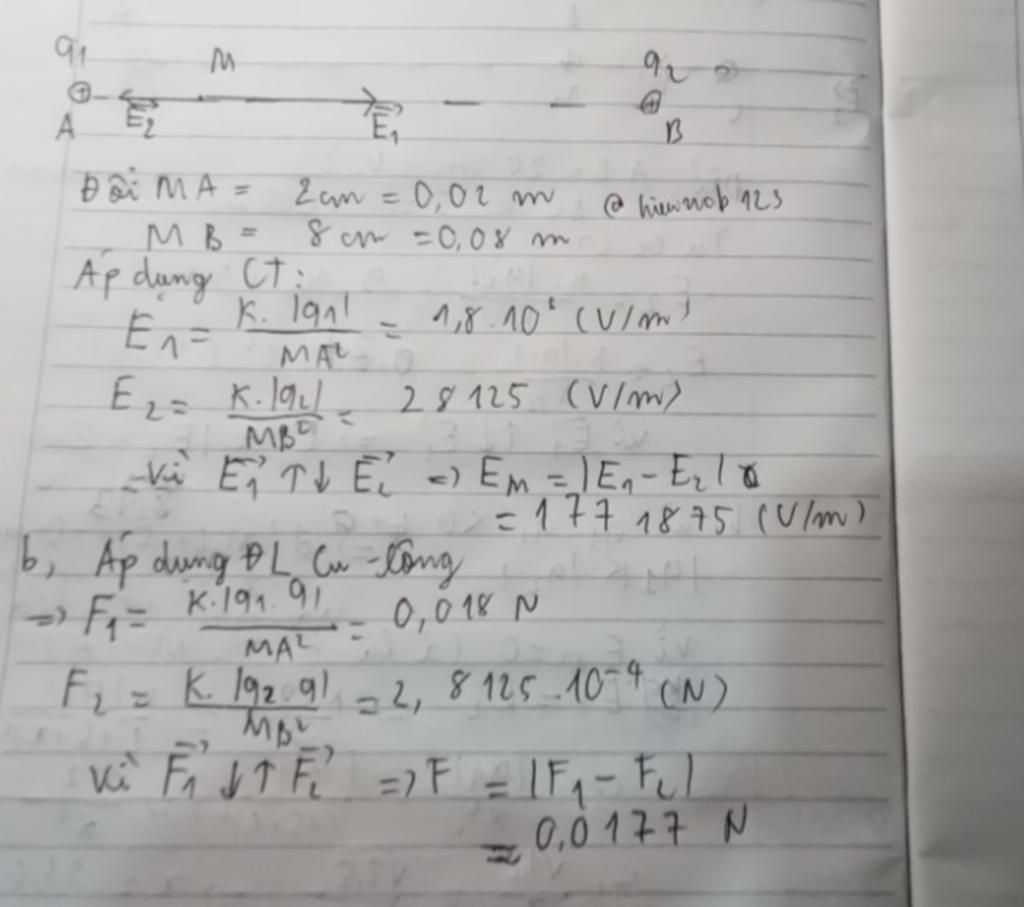 q1 M q2
A E2 E1 B
Đổi MA = 2cm = 0,02 m @hieunob123
MB = 8 cm = 0,08 m
Áp dụng CT:
E1 = K.|q1| / MA² = 1,8.10⁶ (V/m)
E2 = K.|q2| / MB² = 28125 (V/m)
- Vì E1 ↑↓ E2 => EM = |E1 - E2|
= 1771875 (V/m)
b, Áp dụng ĐL Cu-lông
=> F1 = K.|q1.q| / MA² = 0,018 N
F2 = K.|q2.q| / MB² = 2,8125.10⁻⁴ (N)
Vì F1 ↓↑ F2 => F = |F1 - F2|
= 0,0177 N